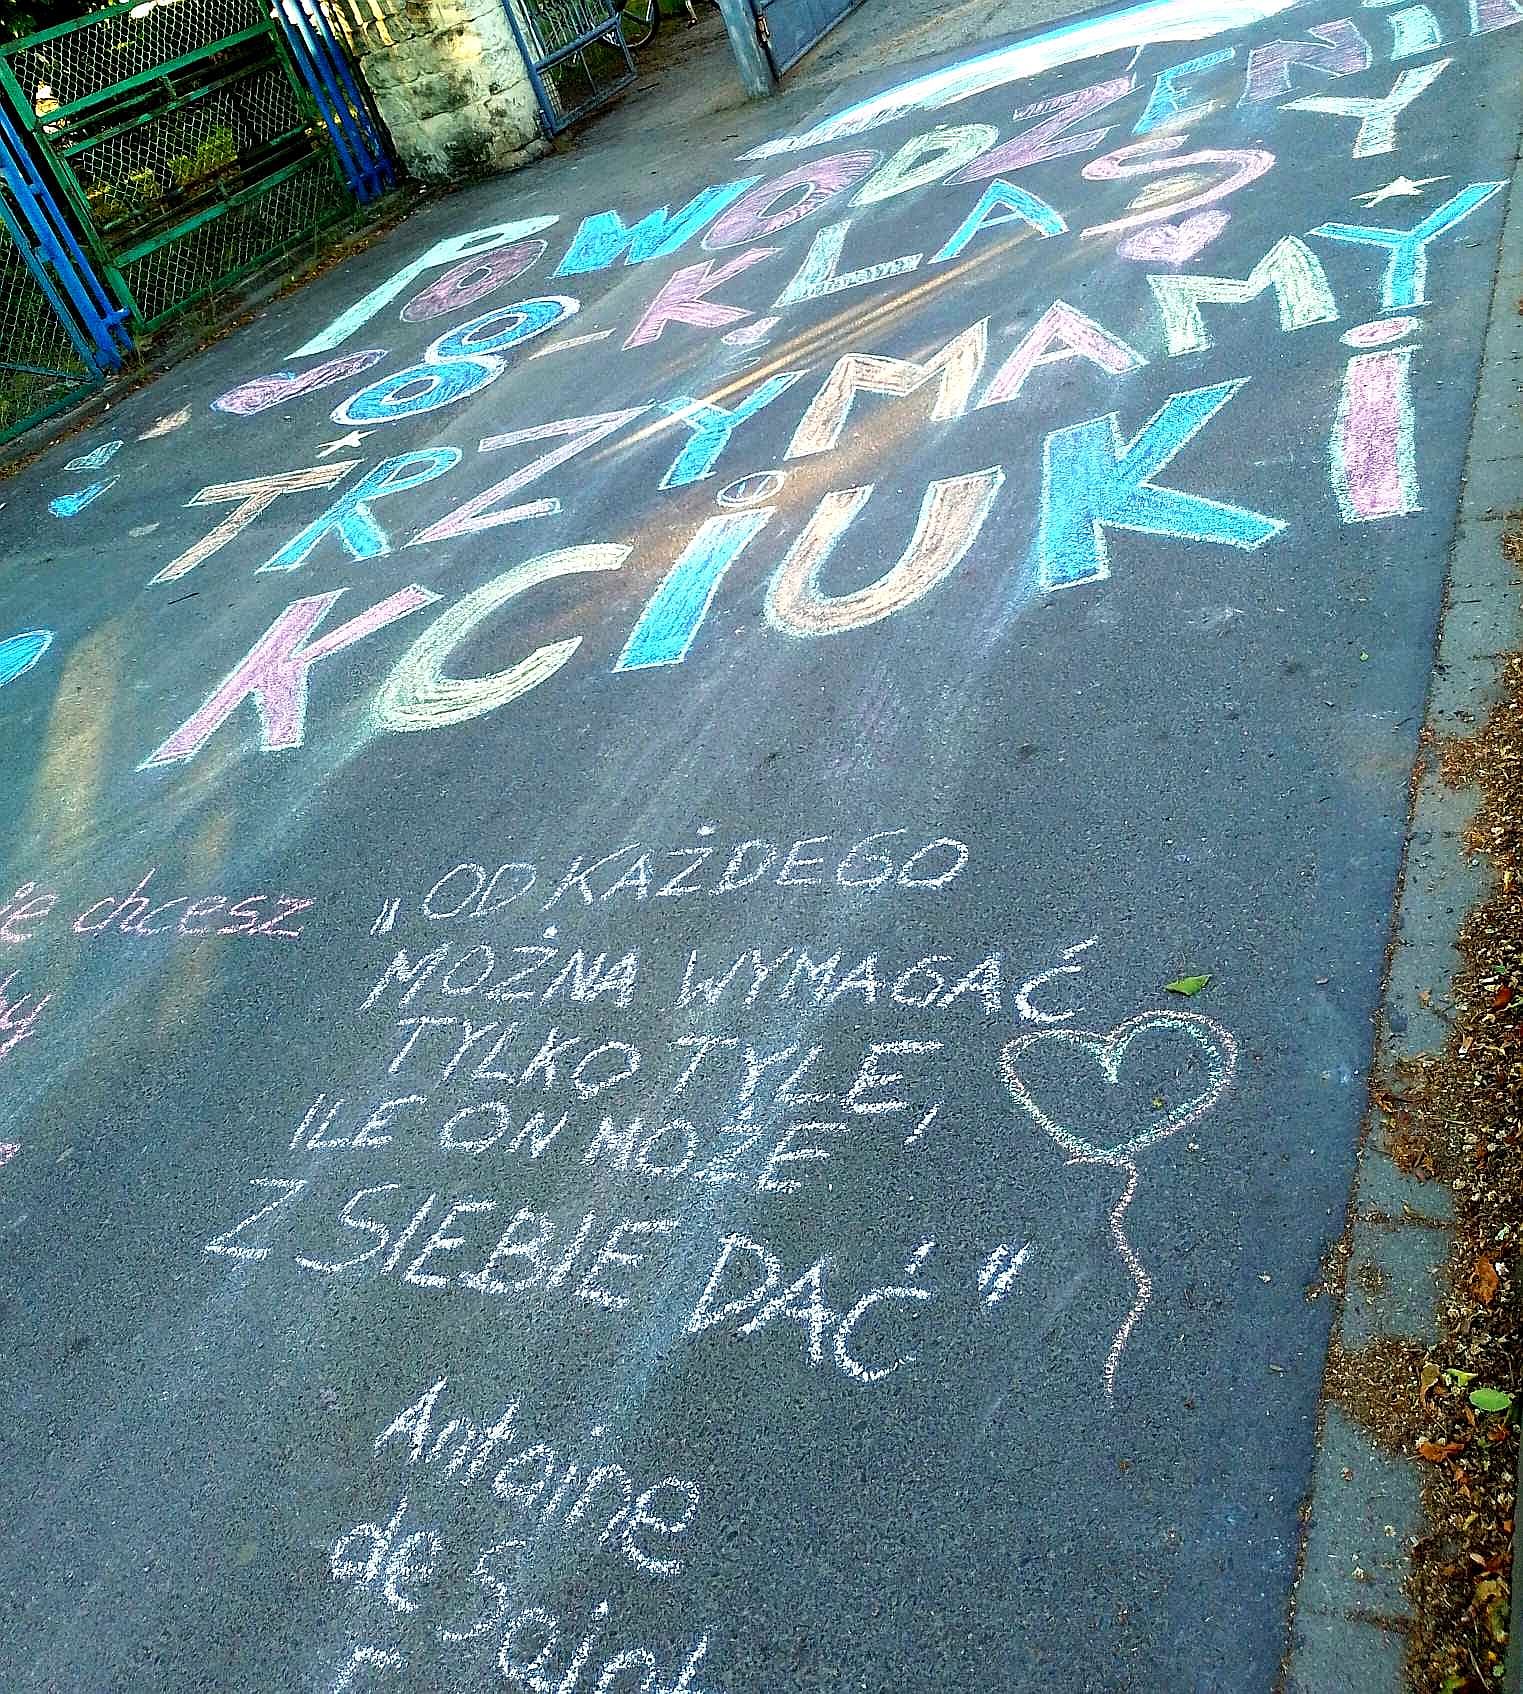 POWODZENIA
8-KLASY
TRZYMAMY
KCIUKI
chcesz
„OD KAŻDEGO
MOŻNA WYMAGAĆ
TYLKO TYLE,
ILE ON MOŻE
Z SIEBIE DAĆ"
Antoine
de Saint